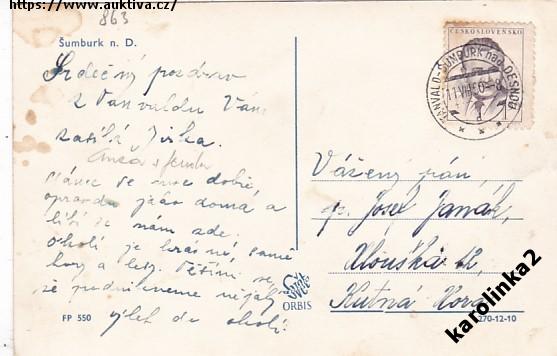 https://www.auktiva.cz/
863
Šumburk n. D.
Srdečný pozdrav
z Tanvaldu Vám
zasílá Jirka.
Máme se moc dobře,
opravdu jako doma a
líbí se nám zde.
Okolí je krásné, samé
hory a lesy. Těšíme se,
že podnikneme nějaký
výlet do okolí.
FP 550
SVĚT
ORBIS
ČESKOSLOVENSKO
TANVALD-ŠUMBURK nad DESNOU
Vážený pán,
p. Josef Janák,
Kutná Hora
270-12-10
karolinka2